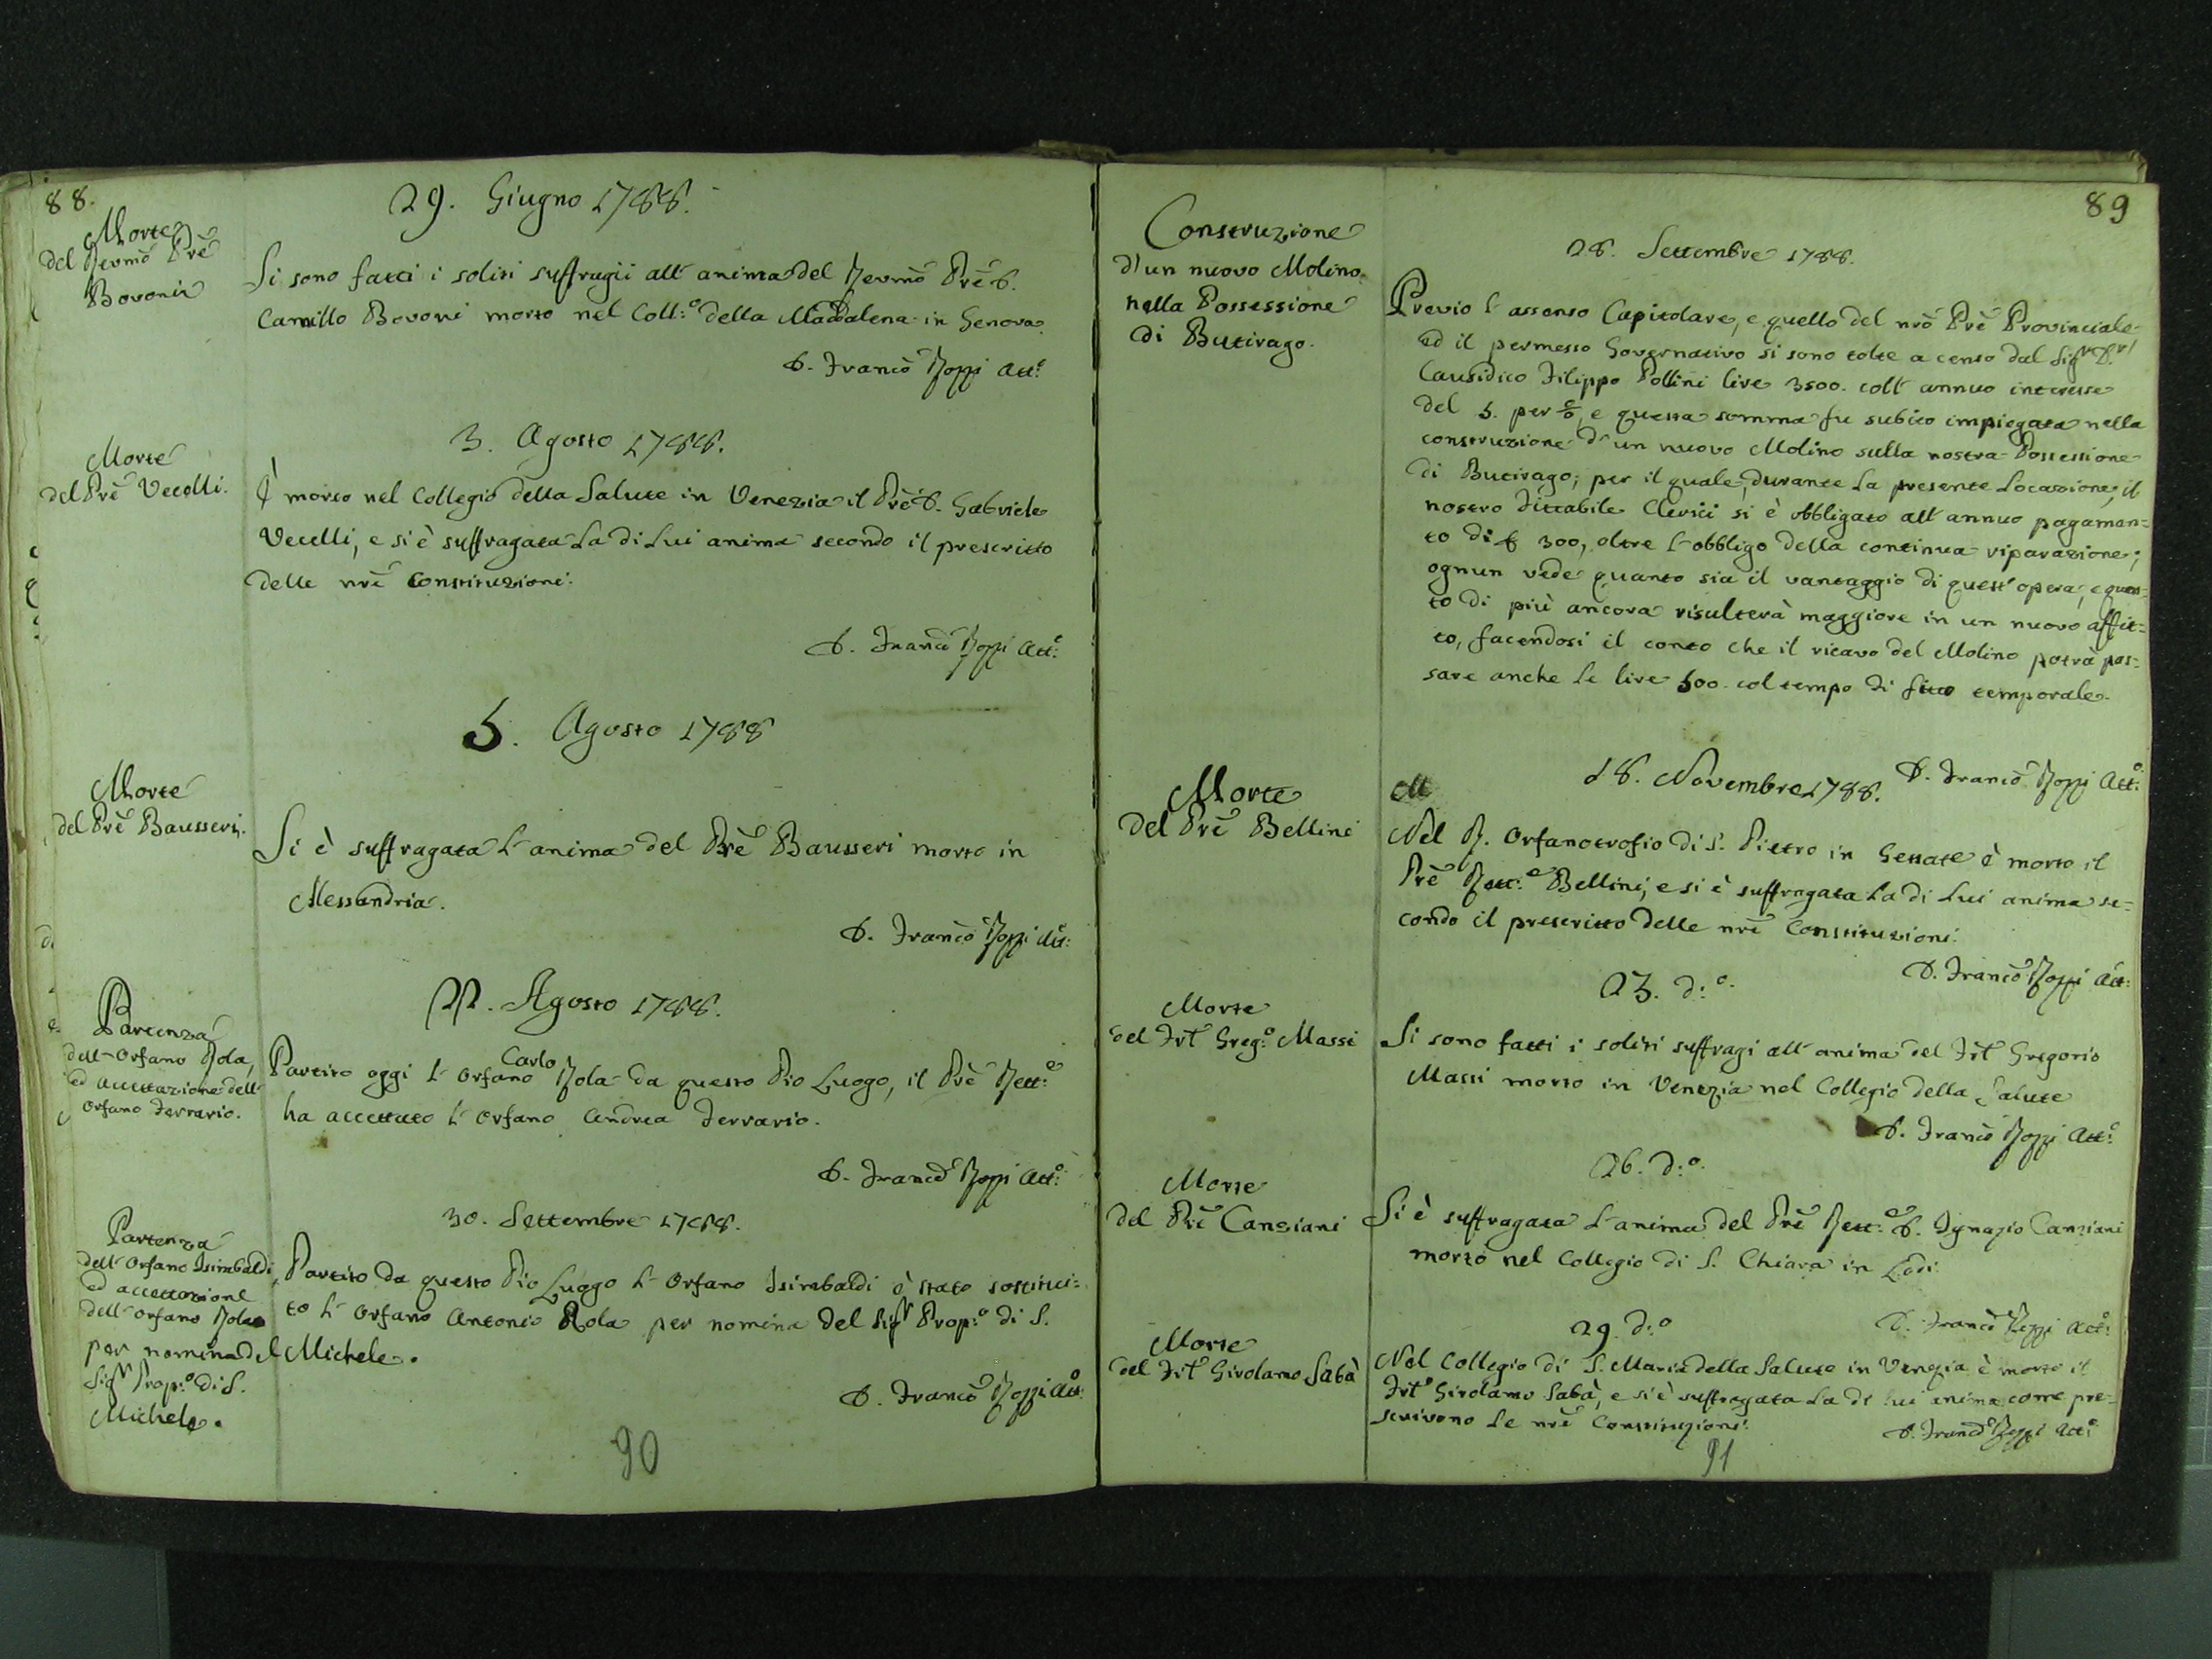 88.
29. Giugno 1788.
Morte
del Revmõ Prẽ
Bovoni
Si sono fatti i soliti suffragii all' anima del Revmõ Prẽ D.
Camillo Bovoni morto nel Coll:º della Maddalena in Genova.
D. Francõ Rozzi Att:º
3. Agosto 1788.
Morte
del Prẽ Vecelli.
È morto nel Collegio della Salute in Venezia il Prẽ D. Gabriele
Vecelli, e si è suffragata la di Lui anima secondo il prescritto
delle nrẽ Constituzioni.
D. Francõ Rozzi Att:º
5. Agosto 1788
Morte
del Prẽ Bausseri.
Si è suffragata l'anima del Prẽ Bausseri morto in
Alessandria.
D. Francõ Rozzi Att:º
22. Agosto 1788.
Partenza
dell'Orfano Rola,
ed accettazione dell'
Orfano Ferrario.
Partito oggi l'Orfano Carlo Rola da questo Pio Luogo, il Prẽ Rett:e
ha accettato l'Orfano Andrea Ferrario.
D. Francõ Rozzi Att:º
30. Settembre 1788.
Partenza
dell'Orfano Isimbaldi,
ed accettazione
dell'Orfano Rola
per nomina del
Sigr Prop:º di S.
Michele.
Partito da questo Pio Luogo l'Orfano Isimbaldi è stato sostitui=
to l'Orfano Antonio Rola per nomina del Sigr Prop:º di S.
Michele.
D. Francõ Rozzi Att:º
90
89
Construzione
d'un nuovo Molino
nella Possessione
di Butirago.
28. Settembre 1788.
Previo l'assenso Capitolare, e quello del nrõ Prẽ Provinciale
ed il permesso Governativo si sono tolte a censo dal Sigr Dr
Causidico Filippo Pollini lire 3500. coll' annuo interesse
del 5. per c/o, e questa somma fu subito impiegata nella
construzione d'un nuovo Molino sulla nostra Possessione
di Butirago; per il quale, durante la presente Locazione, il
nostro Fittabile Clerici si è obbligato all' annuo pagamen=
to di £ 300, oltre l'obbligo della continua riparazione;
ognun vede quanto sia il vantaggio di quest' opera, e quan=
to di più ancora risulterà maggiore in un nuovo affit=
to, facendosi il conto che il ricavo del Molino potrà pas=
sare anche le lire 500. col tempo di fitto temporale.
D. Francõ Rozzi Att:º
18. Novembre 1788.
Morte
del Prẽ Bellini
M
Nel R. Orfanotrofio di S. Pietro in Gessate è morto il
Prẽ Rett:e Bellini, e si è suffragata la di Lui anima se=
condo il prescritto delle nrẽ Constituzioni.
D. Francõ Rozzi Att:º
23. d:º
Morte
del Frt Greg:º Massi
Si sono fatti i soliti suffragi all' anima del Frt Gregorio
Massi morto in Venezia nel Collegio della Salute
D. Francõ Rozzi Att:º
26. d:º
Morte
del Prẽ Canziani
Si è suffragata l'anima del Prẽ Rett:e D. Ignazio Canziani
morto nel Collegio di S. Chiara in Lodi
D. Francõ Rozzi Att:º
29. d:º
Morte
del Frt Girolamo Sabà
Nel Collegio di S. Maria della Salute in Venezia è morto il
Frt Girolamo Sabà, e si è suffragata la di lui anima come pre=
scrivono le nrẽ Constituzioni.
D. Francõ Rozzi Att:º
91